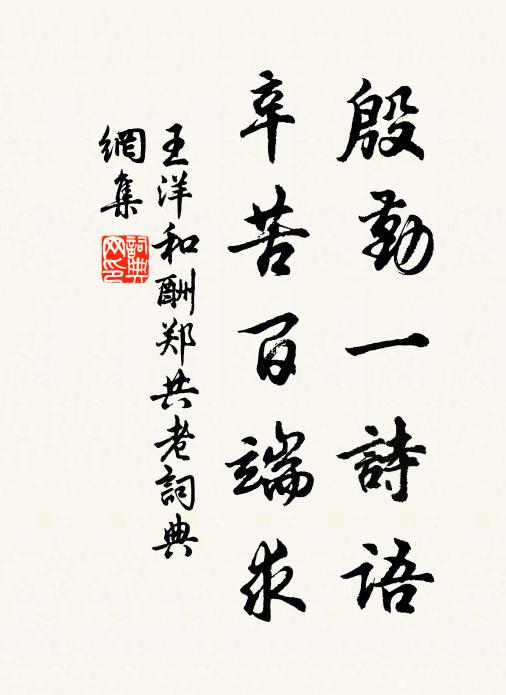 殷勤一詩語
辛苦百端求
王洋和酬郑共老詞典
網集
詞典
网印